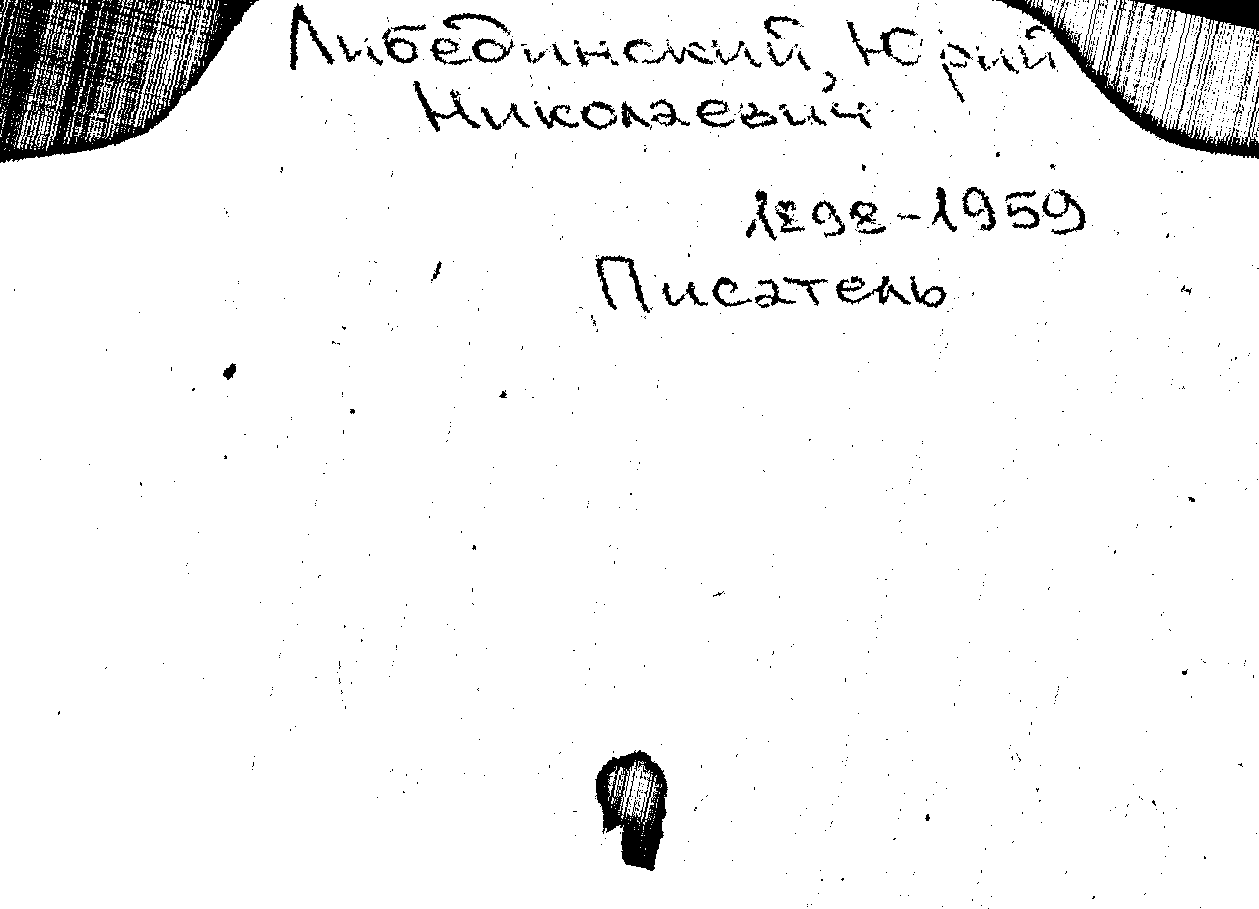 Либединский, Юрий
Николаевич
1898-1959
Писатель